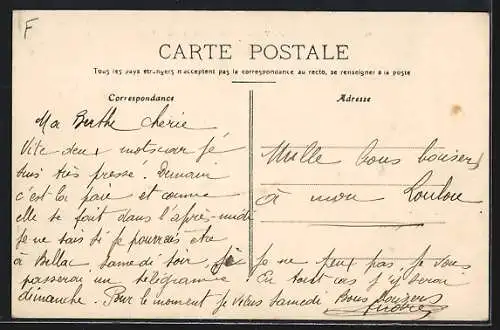 F
CARTE POSTALE
Tous les pays étrangers n'acceptent pas la correspondance au recto, se renseigner à la poste
Correspondance
Adresse
Ma Berthe cherie
Vite deux mots car je
suis très pressé. Demain
c'est la paie et comme
elle se fait dans l'après-midi
je ne sais si je pourrais être
à Bellac samedi soir, je
passerai un télégramme
dimanche. Pour le moment je
Mille bons baisers
à mon Loulou
Je ne peux pas je vous
En tout cas j'y serai
samedi. Bons baisers